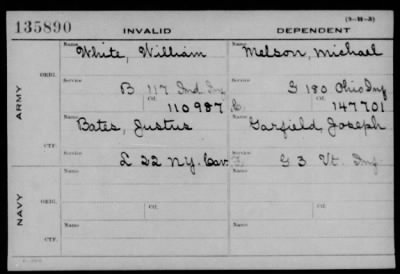 135890 INVALID DEPENDENT (3-M-3)
Name Name
White, William Melson, Michael
ARMY
ORIG.
Service Service
B 117 Ind Inf G 180 Ohio Inf
Ctf. Ctf.
110987 C. 147701
Name Name
Bates, Justus Garfield, Joseph
CTF.
Service Service
L 22 N.Y. Cav. F. G 3 Vt. Inf
NAVY
Name Name
ORIG.
Ctf. Ctf.
Name Name
CTF.